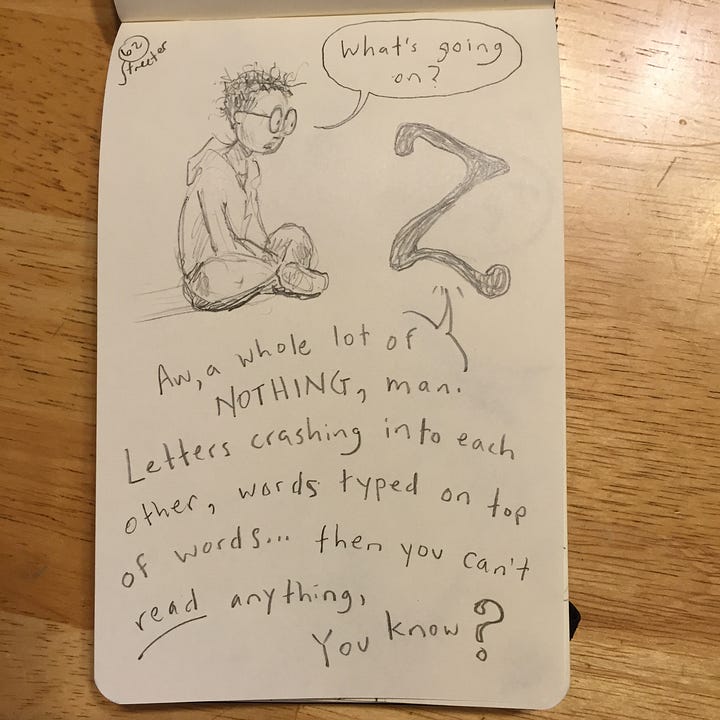 62
Streeter
What's going
on?
Z
Aw, a whole lot of
NOTHING, man.
Letters crashing into each
other, words typed on top
of words... then you can't
read anything,
You know?